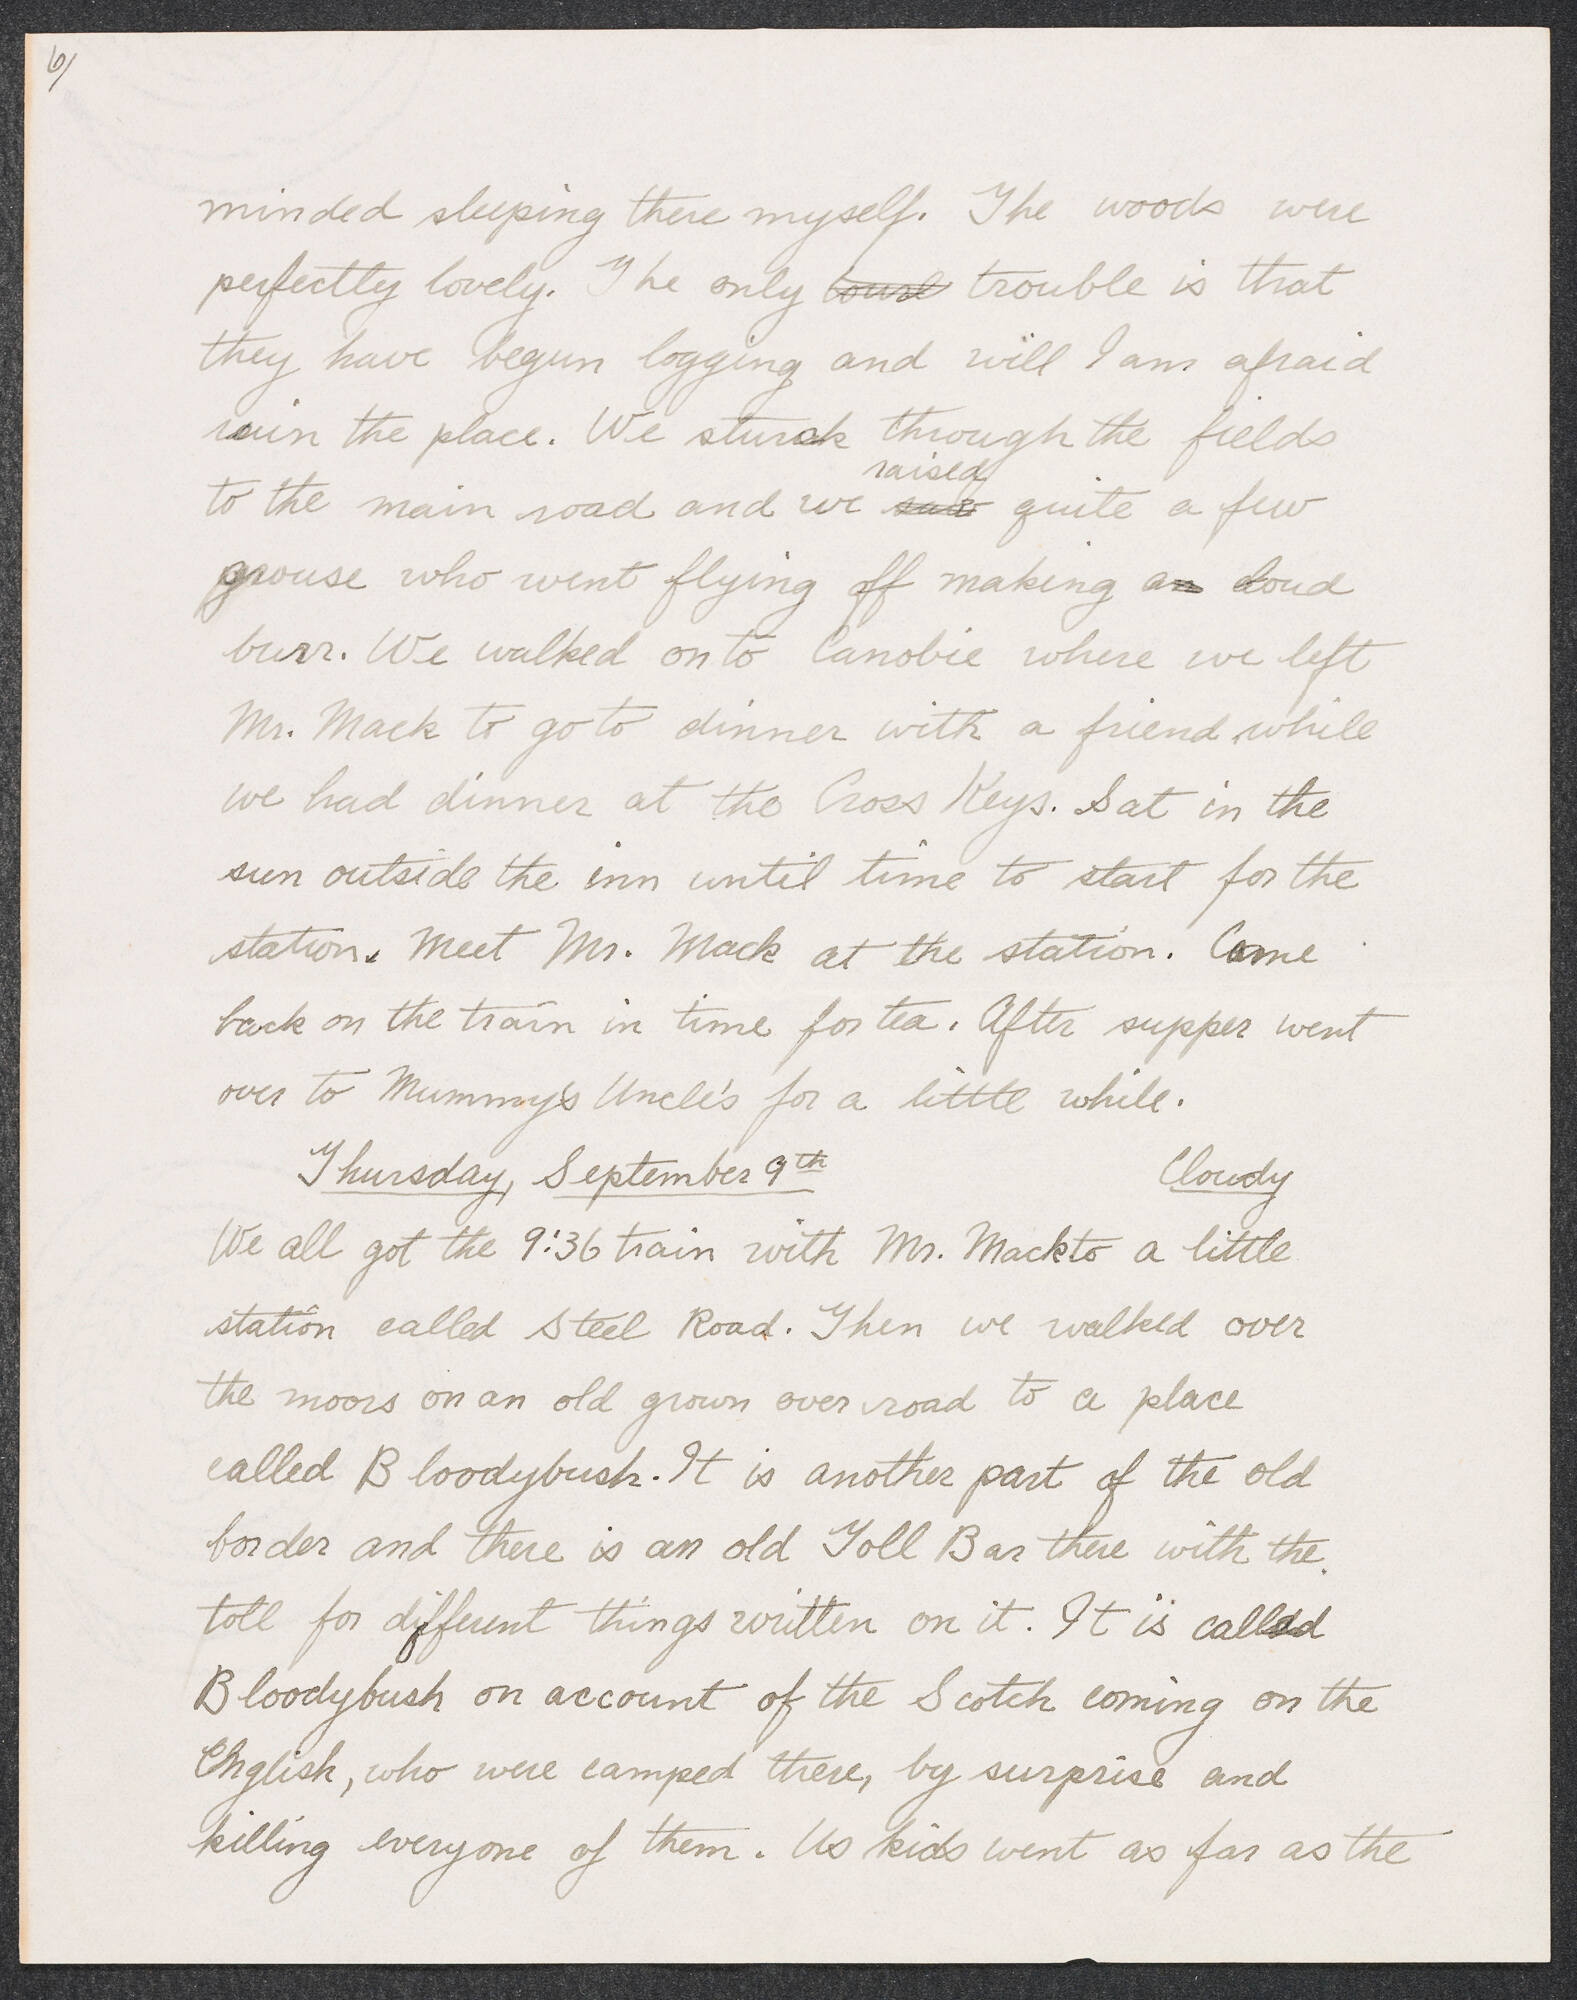 6/
minded sleeping there myself. The woods were
perfectly lovely. The only trouble is that
they have begun logging and will I am afraid
ruin the place. We sturck through the fields
raised
to the main road and we saw quite a few
grouse who went flying off making a loud
burr. We walked on to Canobie where we left
Mr. Mack to go to dinner with a friend while
we had dinner at the Cross Keys. Sat in the
sun outside the inn until time to start for the
station. Meet Mr. Mack at the station. Came
back on the train in time for tea. After supper went
over to Mummy's Uncle's for a little while.
Thursday, September 9th Cloudy
We all got the 9:36 train with Mr. Mack to a little
station called Steel Road. Then we walked over
the moors on an old grown over road to a place
called Bloodybush. It is another part of the old
border and there is an old Toll Bar there with the
toll for different things written on it. It is called
Bloodybush on account of the Scotch coming on the
English, who were camped there, by surprise and
killing everyone of them. Us kids went as far as the